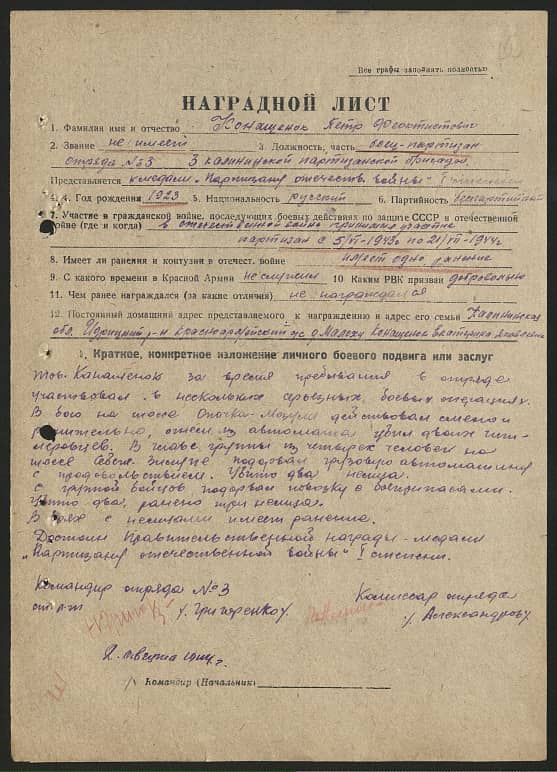 Все графы заполнять полностью
НАГРАДНОЙ ЛИСТ
1. Фамилия имя и отчество Конащенок Петр Феоктистович
2. Звание не имеет 3. Должность, часть боец-партизан
отряда №3 3 калининской партизанской бригады
Представляется к медали "Партизану отечеств. войны" I степени
4. Год рождения 1923 5. Национальность русский 6. Партийность беспартийный
7. Участие в гражданской войне, последующих боевых действиях по защите СССР и отечественной
войне (где и когда) в отечественной войне принимал участие
партизан с 5/VI-1943г по 21/VII-1944г.
8. Имеет ли ранения и контузии в отечест. войне имеет одно ранение
9. С какого времени в Красной Армии не служил 10 Каким РВК призван добровольно
11. Чем ранее награждался (за какие отличия) не награждался
12. Постоянный домашний адрес представляемого к награждению и адрес его семьи Калининская
обл. Идрицкий р-н Красноармейский с/с Конащенок
1. Краткое, конкретное изложение личного боевого подвига или заслуг
Тов. Канащенок за время пребывания в отряде
участвовал в нескольких серьезных боевых операциях.
В бою на шоссе Опочка-Мозули действовал смело и
решительно, огнем из автомата убил двоих гит-
леровцев. В главе группы из четырех человек на
шоссе Себеж подорвал грузовую автомашину
с продовольствием. Убито два немца.
С группой бойцов подорвал повозку с боеприпасами.
Убито два, ранено три немца.
В боях с немцами имеет ранение.
Достоин Правительственной награды - медали
"Партизану отечественной войны" I степени.
Командир отряда №3 Комиссар отряда
ст. л-т /Григоренко/ /Александров/
2. августа 1944 г.
Командир (Начальник)